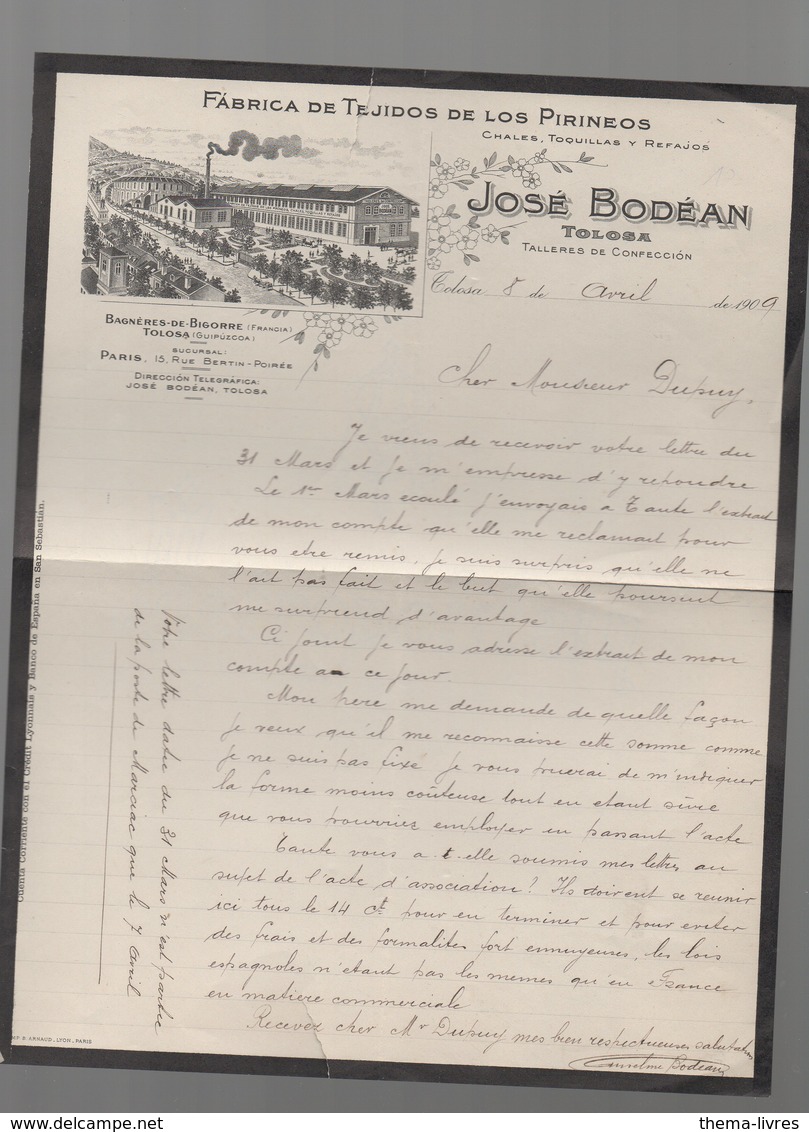 FÁBRICA DE TEJIDOS DE LOS PIRINEOS
CHALES, TOQUILLAS Y REFAJOS
JOSÉ BODÉAN
TOLOSA
TALLERES DE CONFECCIÓN
Tolosa 8 de Avril de 1909
BAGNÈRES-DE-BIGORRE (FRANCIA)
TOLOSA (GUIPÚZCOA)
SUCURSAL:
PARIS, 15, RUE BERTIN-POIRÉE
DIRECCIÓN TELEGRÁFICA:
JOSÉ BODÉAN, TOLOSA
Cher Monsieur Dupuy,
Je viens de recevoir votre lettre du
31 Mars et je m'empresse d'y repondre
Le 1er Mars ecoulé j'envoyais a Tante l'extrait
de mon compte qu'elle me reclamait pour
vous etre remis, je suis surpris qu'elle ne
l'ait pas fait et le but qu'elle poursuit
me surprend d'avantage
Ci joint je vous adresse l'extrait de mon
compte a ce jour.
Mon pere me demande de quelle façon
je veux qu'il me reconnaisse cette somme comme
je ne suis pas fixé je vous prierai de m'indiquer
la forme moins coûteuse tout en etant sûre
que vous pourriez employer en passant l'acte
Tante vous a t-elle soumis mes lettres au
sujet de l'acte d'association? Ils doivent se reunir
ici tous le 14 ct pour en terminer et pour eviter
des frais et des formalites fort ennuyeuses, les lois
espagnoles n'etant pas les memes qu'en France
en matiere commerciale
Recevez cher Mr Dupuy mes bien respectueuses salutations
Anselme Bodean
Votre lettre datée du 31 Mars n'est partie
de la poste de Marciac que le 7 avril
Cuenta Corriente con el Crédit Lyonnais y Banco de España en San Sebastián.
IMP. B. ARNAUD, LYON, PARIS
thema-livres